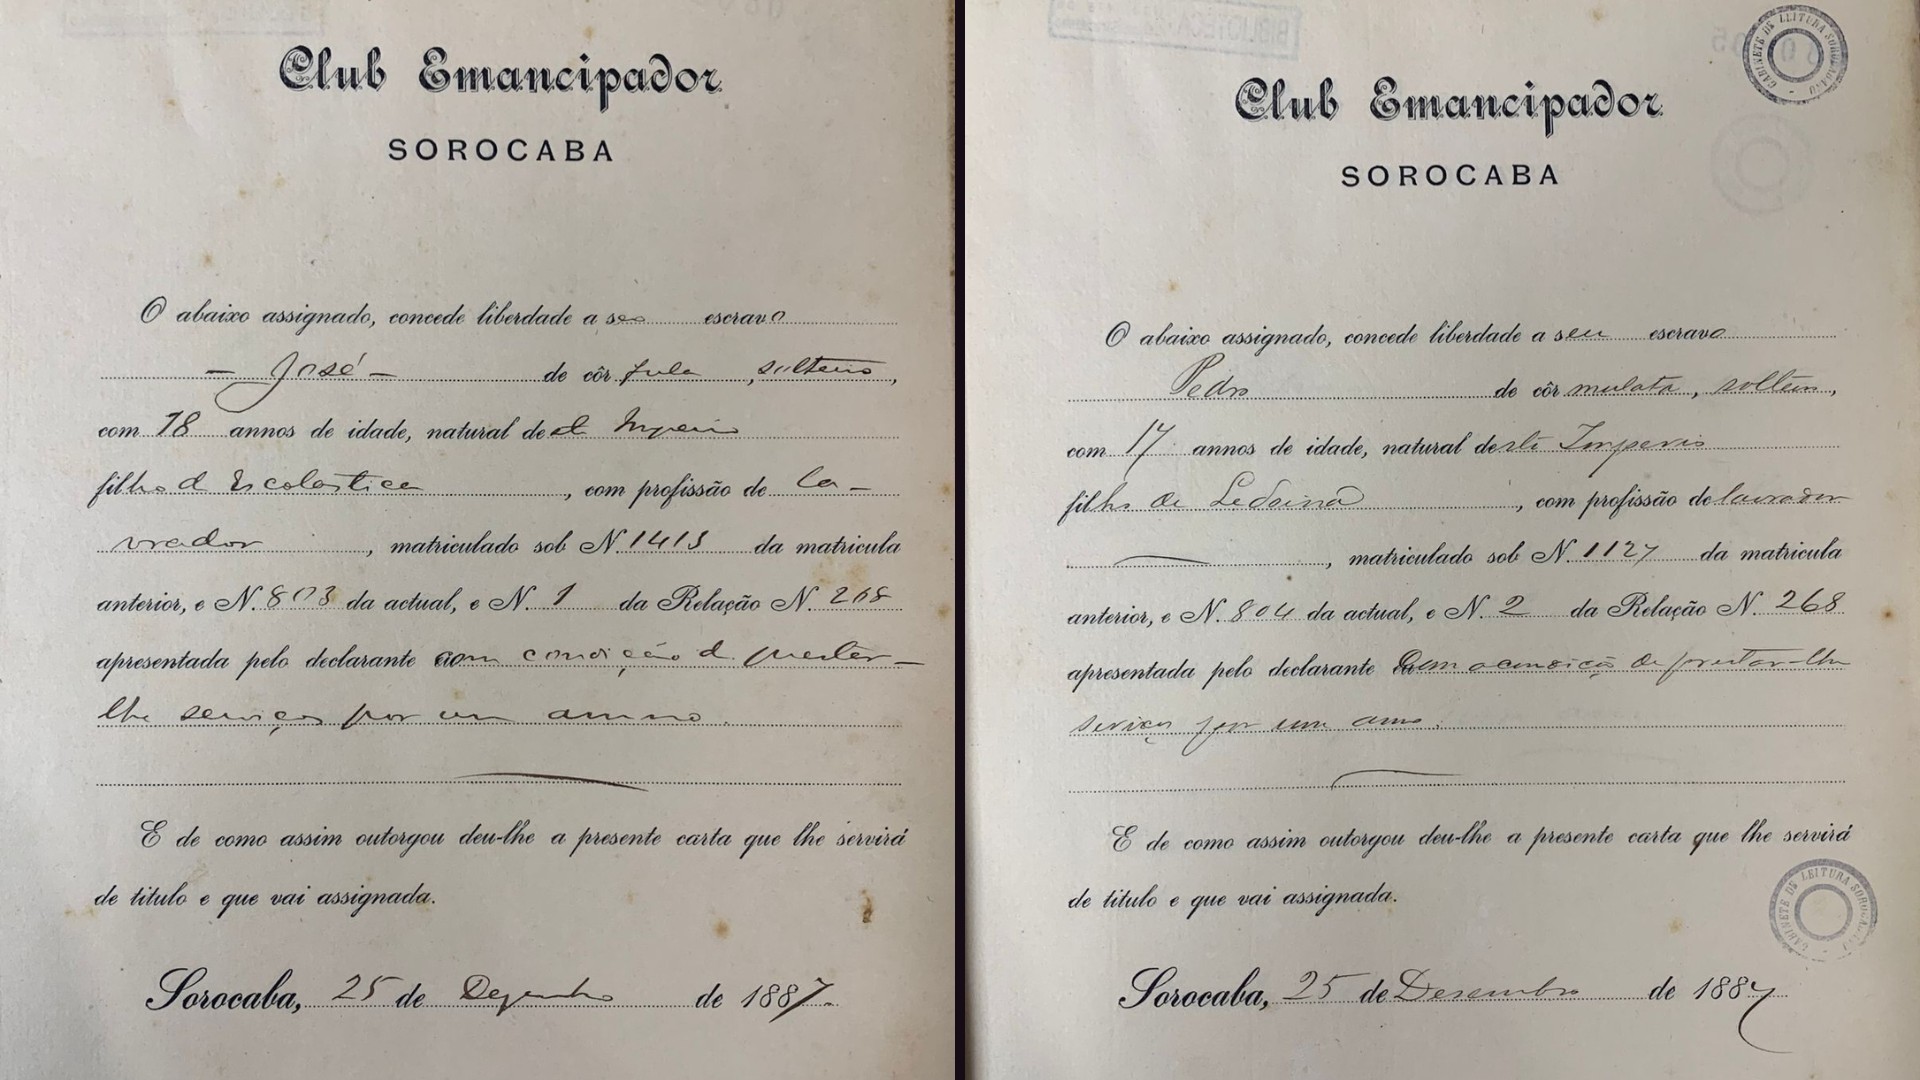 Club Emancipador
SOROCABA
O abaixo assignado, concede liberdade a seo escravo
— José — de côr fula, solteiro,
com 18 annos de idade, natural deste Imperio
filho d Escolastica, com profissão de la-
vrador, matriculado sob N. 1413 da matricula
anterior, e N. 803 da actual, e N. 1 da Relação N. 268
apresentada pelo declarante com condição d prestar-
lhe serviços por um anno.
E de como assim outorgou deu-lhe a presente carta que lhe servirá
de titulo e que vai assignada.
Sorocaba, 25 de Dezembro de 1887.
GABINETE DE LEITURA SOROCABANO
BIBLIOTECA
Club Emancipador
SOROCABA
O abaixo assignado, concede liberdade a seu escravo
Pedro de côr mulata, solteiro,
com 17 annos de idade, natural deste Imperio
filho de, com profissão de lavrador
, matriculado sob N. 1127 da matricula
anterior, e N. 804 da actual, e N. 2 da Relação N. 268
apresentada pelo declarante com a condição de prestar-lhe
serviços por um anno.
E de como assim outorgou deu-lhe a presente carta que lhe servirá
de titulo e que vai assignada.
GABINETE DE LEITURA SOROCABANO
Sorocaba, 25 de Desembro de 1887